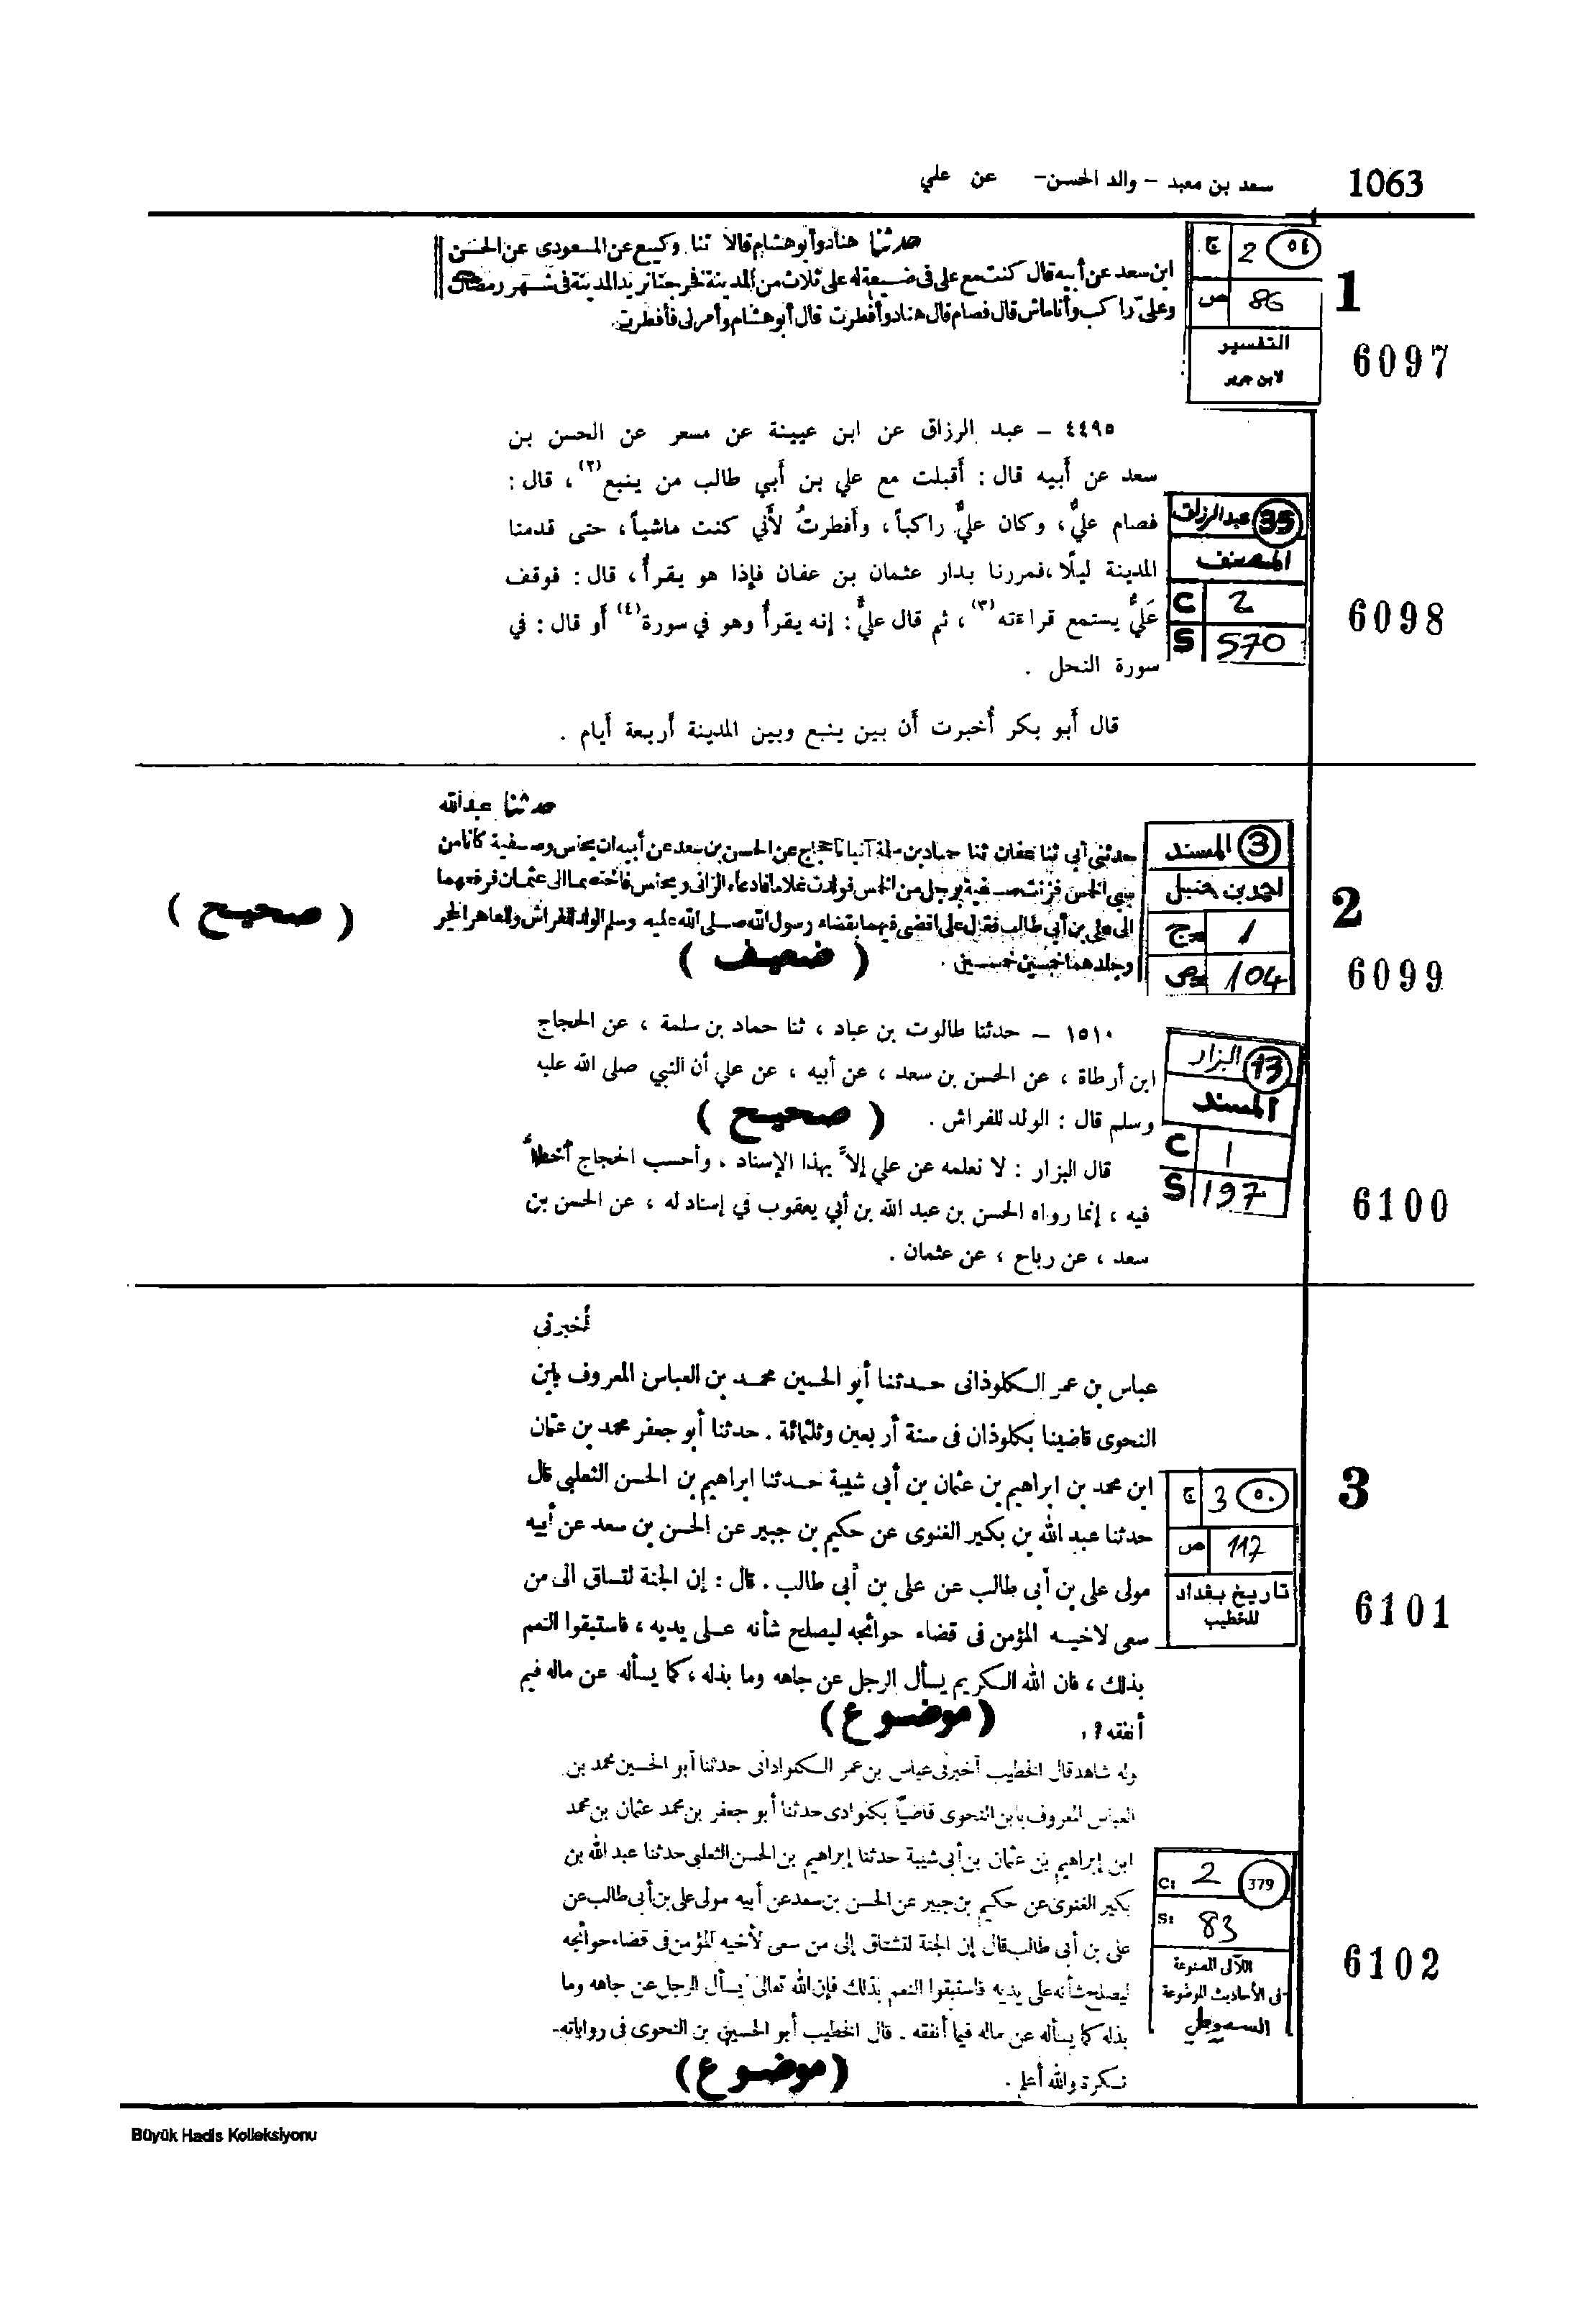 1063
سعد بن معبد - والد الحسن - عن علي
1
6097
٥٤ 2 ج
86 ص
التفسير
لابن جرير
حدثنا هناد وأبو هشام قالا ثنا وكيع عن المسعودى عن الحسن
ابن سعد عن أبيه قال كنت مع على فى ضيعة له على ثلاث من المدينة فخرجنا نريد المدينة فى شهر رمضان
وعلىّ راكب وأنا ماش قال فصام قال هناد وأفطرت قال أبو هشام وأمرنى فأفطرت.
6098
35 عبد الرزاق
المصنف
C 2
S 570
٤٤٩٥ – عبد الرزاق عن ابن عيينة عن مسعر عن الحسن بن
سعد عن أَبيه قال : أَقبلت مع علي بن أَبي طالب من ينبع(٢) ، قال :
فصام عليٌّ ، وكان عليٌّ راكباً ، وأَفطرتُ لأَني كنت ماشياً ، حتى قدمنا
المدينة ليلًا ،فمررنا بدار عثمان بن عفان فإذا هو يقرأُ ، قال : فوقف
عَليٌّ يستمع قراءته(٣) ، ثم قال عليٌّ : إنه يقرأُ وهو في سورة(٤) أَو قال : في
سورة النحل .
قال أَبو بكر أُخبرت أَن بين ينبع وبين المدينة أَربعة أَيام .
2
6099
3 المسند
احمد بن حنبل
ج 1
ص 104
حدثنا عبدالله
حدثنى أبى ثنا عفان ثنا حماد بن سلمة أنبأنا حجاج عن الحسن بن سعد عن أبيه ان يحنس وصفية كانا من
سبى الخمس فزنت صفية برجل من الخمس فولدت غلاما فادعاه الزانى ويحنس فاختصما الى عثمان فرفعهما
الى على بن أبى طالب فقال على اقضى فيهما بقضاء رسول الله صلى الله عليه وسلم الولد للفراش وللعاهر الحجر
وجلدهما خمسين خمسين .
( ضعيف )
( صحيح )
6100
13 البزار
المسند
C 1
S 197
١٥١٠ – حدثنا طالوت بن عباد ، ثنا حماد بن سلمة ، عن الحجاج
ابن أرطاة ، عن الحسن بن سعد ، عن أبيه ، عن علي أن النبي صلى الله عليه
وسلم قال : الولد للفراش . ( صحيح )
قال البزار : لا نعلمه عن علي إلاَّ بهذا الإسناد ، وأحسب الحجاج أخطأ
فيه ، إنما رواه الحسن بن عبد الله بن أبي يعقوب في إسناد له ، عن الحسن بن
سعد ، عن رباح ، عن عثمان .
3
6101
٥٠ 3 ج
117 ص
تاريخ بغداد
للخطيب
أخبرنى
عباس بن عمر الكلوذانى حدثنا أبو الحسين محمد بن العباس المعروف بابن
النحوى قاضينا بكلوذان فى سنة أربعين وثلثمائة . حدثنا أبو جعفر محمد بن عثمان
ابن محمد بن ابراهيم بن عثمان بن أبى شيبة حدثنا ابراهيم بن الحسن الثعلبى قال
حدثنا عبد الله بن بكير الغنوى عن حكيم بن جبير عن الحسن بن سعد عن أبيه
مولى على بن أبى طالب عن على بن أبى طالب . قال : إن الجنة لتساق الى من
سعى لاخيه المؤمن فى قضاء حوائجه ليصلح شأنه على يديه ، فاستبقوا النعم
بذلك ، فان الله الكريم يسأل الرجل عن جاهه وما بذله ، كما يسأله عن ماله فيم
أنفقه ؟ .
( موضوع )
6102
379 C: 2
S: 83
اللآلى المصنوعة
فى الأحاديث الموضوعة
السيوطي
وله شاهد قال الخطيب أخبرنى عباس بن عمر الكلوادانى حدثنا أبو الحسين محمد بن
العباس المعروف بابن النحوى قاضيّا بكلوادى حدثنا أبو جعفر بن محمد عثمان بن محمد
ابن إبراهيم بن عثمان بن أبى شيبة حدثنا إبراهيم بن الحسن الثعلبى حدثنا عبد الله بن
بكير الغنوى عن حكيم بن جبير عن الحسن بن سعد عن أبيه مولى على بن أبى طالب عن
على بن أبى طالب قال إن الجنة لتشتاق إلى من سعى لأخيه المؤمن فى قضاء حوائجه
ليصلح شأنه على يديه فاستبقوا النعم بذلك فإن الله تعالى يسأل الرجل عن جاهه وما
بذله كما يسأله عن ماله فيما أنفقه . قال الخطيب أبو الحسين بن النحوى فى رواياته
نكرة والله أعلم .
( موضوع )
Büyük Hadis Kolleksiyonu